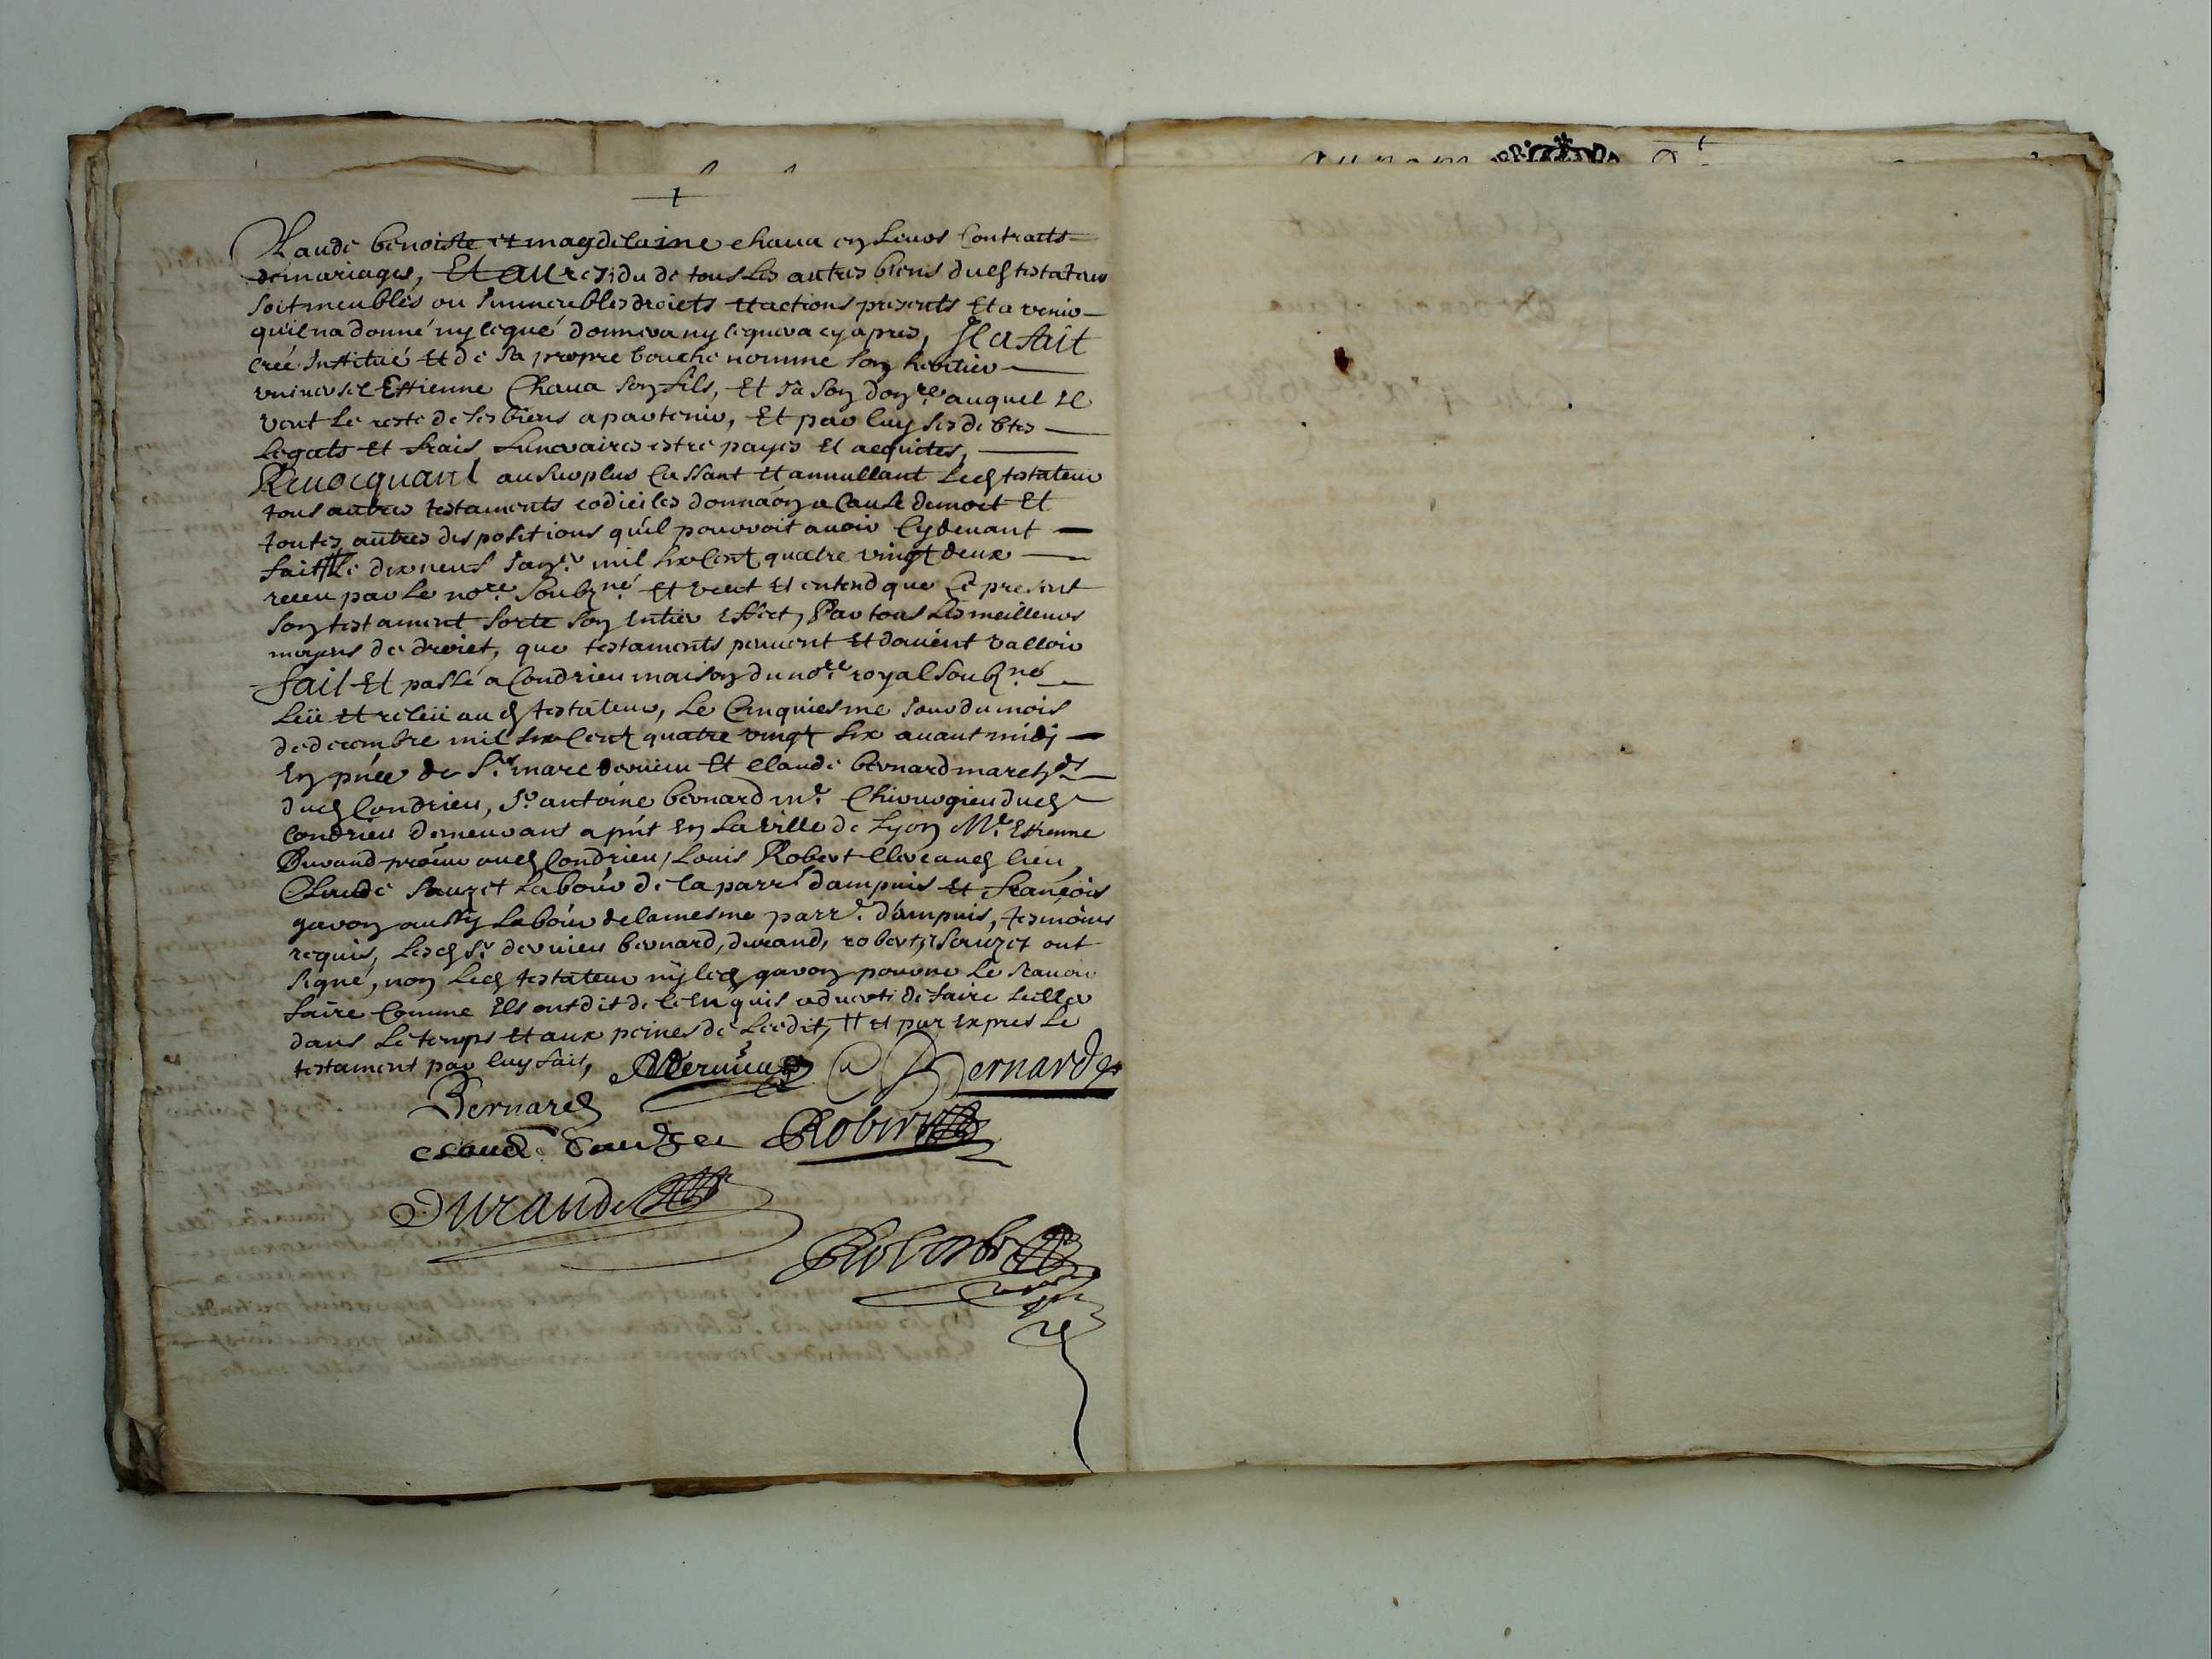 Claude benoiste et magdelaine chaua en leurs Contraits
de mariages, Et au residu de tous les autres biens dud testateur
soit meubles ou Immeubles droicts et actions presents Et a venir
qu'il na donné ny legué donnera ny leguera cy apres, Il a fait
creé Institué Et de sa propre bouche nommé son heritier
vniuersel Estienne Chaua son fils, Et auquel Il
veut le reste de ses biens apartenir, Et par luy ses debtes
Legats Et frais funeraires estre payes Et acquictes,
Reuocquant au surplus Cassant et annullant Led testateur
tous autres testaments codiciles donnaon a Cause de mort Et
toutes autres dispositions qu'il pourroit auoir Cy deuant
fait ++ Le dix neuf Janr. mil six Cent quatre vingt deux
receu par Le nore. soubzné. Et veut Et entend que Le present
son testament sorte son Entier Effect, Par tous Les meilleurs
moyens de droict, que testaments peuuent Et doiuent valloir
fait Et passé a Condrieu maison du nore. royal soubzné
Leü et releü aud testateur, Le Cinquiesme Jour du mois
de decembre mil six Cent quatre vingt six auant midj
En pnce de Sr. marc deruieu Et Claude bernard marchds
dud Condrieu, Sr. antoine bernard me. Chirurgien dud
Condrieu demeurans a pnt En La ville de Lyon Me. Estienne
Durand procur aud Condrieu, Louis Robert Clerc aud lieu
Claude Sauzet Labour de la parre. dampuis et François
gavon aussy Labour de la mesme parre. d'ampuis, tesmoins
requis, Lesd Sr. deruieu bernard, durand, robert et Sauzet ont
signé, non Led testateur ny led gavon pour ne Le scauoir
faire Comme Ils ont dit de ce Enquis aduerti de faire seeller
dans Le temps Et aux peines de Leedit, ++ et par Expres Le
testament par luy fait, MDeruieu C Bernard
Bernard
claude Sauzet Robert
Durand
Robert